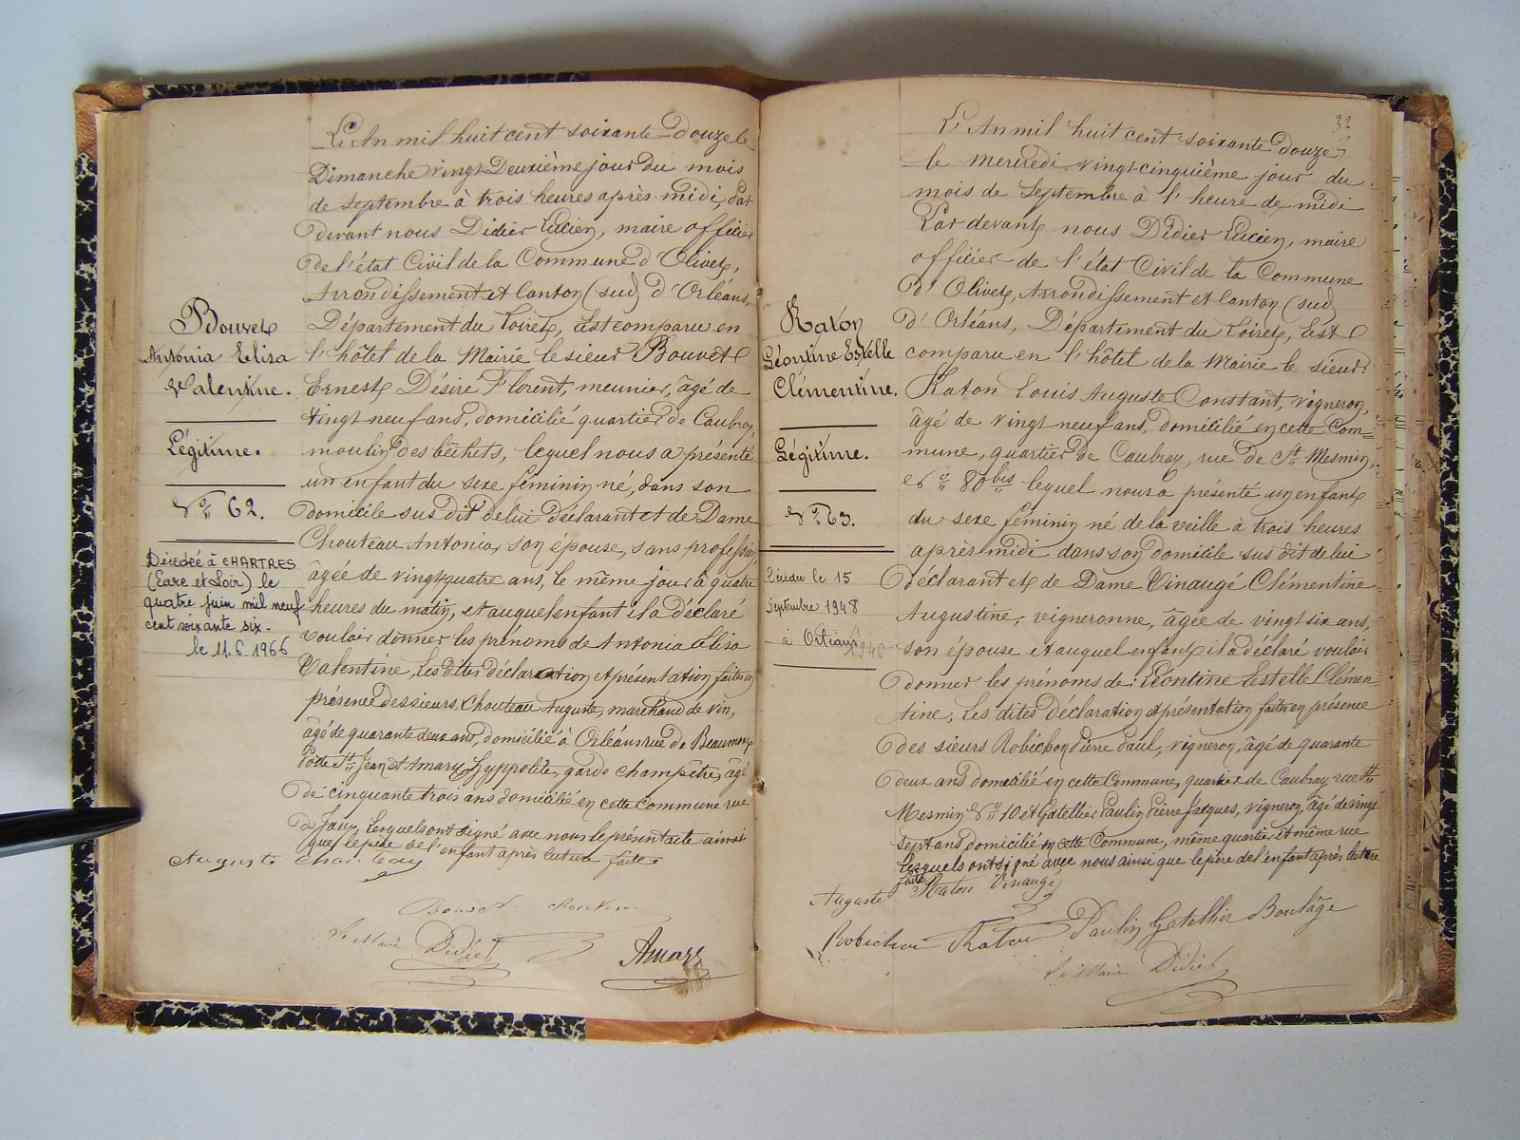 L'An mil huit cent soixante Douze le
Dimanche vingt Deuxième jour du mois
de Septembre à trois heures après midi, Par
devant nous Didier Lucien, maire officier
de l'état Civil de la Commune d'Olivet,
Arrondissement et Canton (sud) d'Orléans,
Département du Loiret, Est comparu en
l'hôtel de la Mairie le sieur Bouvet
Ernest Désiré Florent, meunier, âgé de
vingt neuf ans, domicilié quartier de Caubray,
moulin des béchets, lequel nous a présenté
un enfant du sexe féminin né, dans son
domicile sus dit de lui déclarant et de Dame
Chouteau Antonia, son épouse, sans profession
âgée de vingt quatre ans, le même jour à quatre
heures du matin, et auquel enfant il a déclaré
vouloir donner les prénoms de Antonia Elisa
Valentine, Les dites déclaration et présentation faites en
présence des sieurs Chouteau Auguste, marchand de vin,
âgé de quarante deux ans, domicilié à Orléans rue du
Porte St Jean et Amary Hyppolite, garde champêtre, âgé
de cinquante trois ans domicilié en cette commune rue
lesquels ont signé avec nous le présent acte ainsi
que le père de l'enfant après lecture faite
Auguste Chouteau
Bouvet Chouteau
Le Maire Didier
Amary
Bouvet
Antonia Elisa
Valentine.
Légitime.
No 62.
Décédée à CHARTRES
(Eure et Loir) le
quatre juin mil neuf
cent soixante six.
le 11.6.1966
32
L'An mil huit cent soixante Douze
le mercredi vingt cinquième jour du
mois de Septembre à l'heure de midi
Par devant nous Didier Lucien, maire
officier de l'état Civil de la Commune
d'Olivet, Arrondissement et Canton (sud)
d'Orléans, Département du Loiret, Est
comparu en l'hôtel de la Mairie le sieur
Raton Louis Auguste Constant, vigneron,
âgé de vingt neuf ans, domicilié en cette Com=
mune, quartier de Caubray, rue de St Mesmin,
No 80 bis lequel nous a présenté un enfant
du sexe féminin né de la veille à trois heures
après midi dans son domicile sus dit de lui
déclarant et de Dame Vinaugé Clémentine
Augustine, vigneronne, âgée de vingt six ans,
son épouse et auquel enfant il a déclaré vouloir
donner les prénoms de : Léontine Estelle Clémen
tine, Les dites déclaration et présentation faites en présence
des sieurs Robichon Pierre Paul, vigneron, âgé de quarante
deux ans domicilié en cette Commune, quartier de Caubray rue St
Mesmin No 10 et Gatellier Paulin Pierre Jacques, vigneron, âgé de vingt
sept ans domicilié en cette Commune, même quartier et même rue
lesquels ont signé avec nous ainsi que le père de l'enfant après lecture
faite Raton Vinaugé
Auguste
Robichon Raton Paulin Gatellier Boulage
Le Maire Didier
Raton
Léontine Estelle
Clémentine.
Légitime.
No 63.
Décédée le 15
Septembre 1948
à Orléans
1948